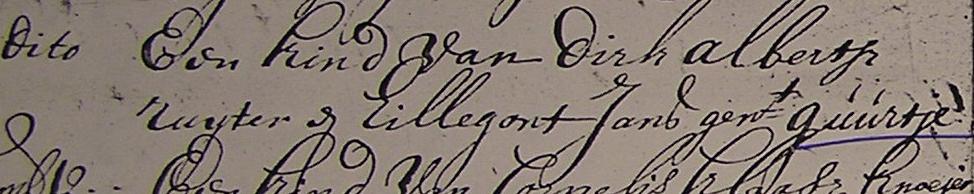 dito Een kind van Dirk alberts
Ruyter & Lillegont Jans gent guurtje
Een kind van Cornelis Klaasz